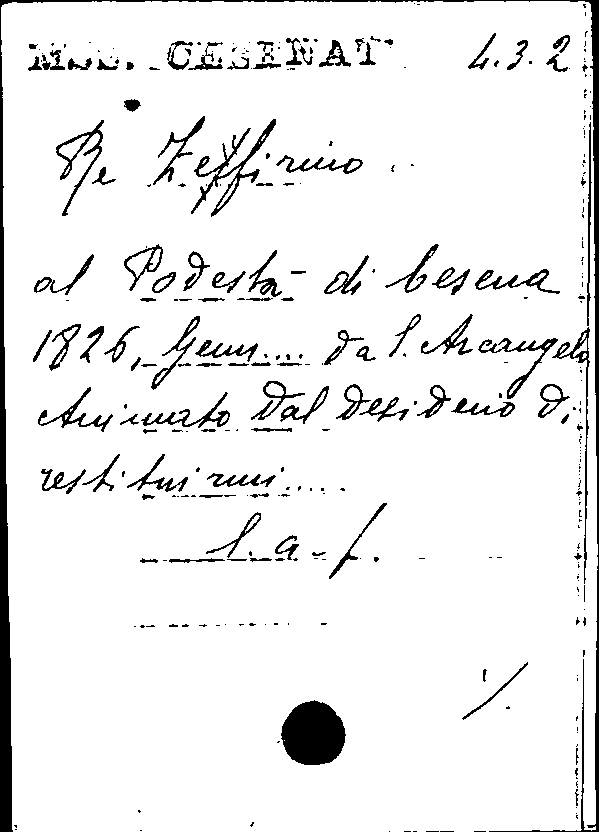 MSS. CESENAT
4.3.2
Re Zeffirino
al Podestà di Cesena
1826, Genn.... da S. Arcangelo
Animato dal desiderio di
restituirmi.....
l. a. f.